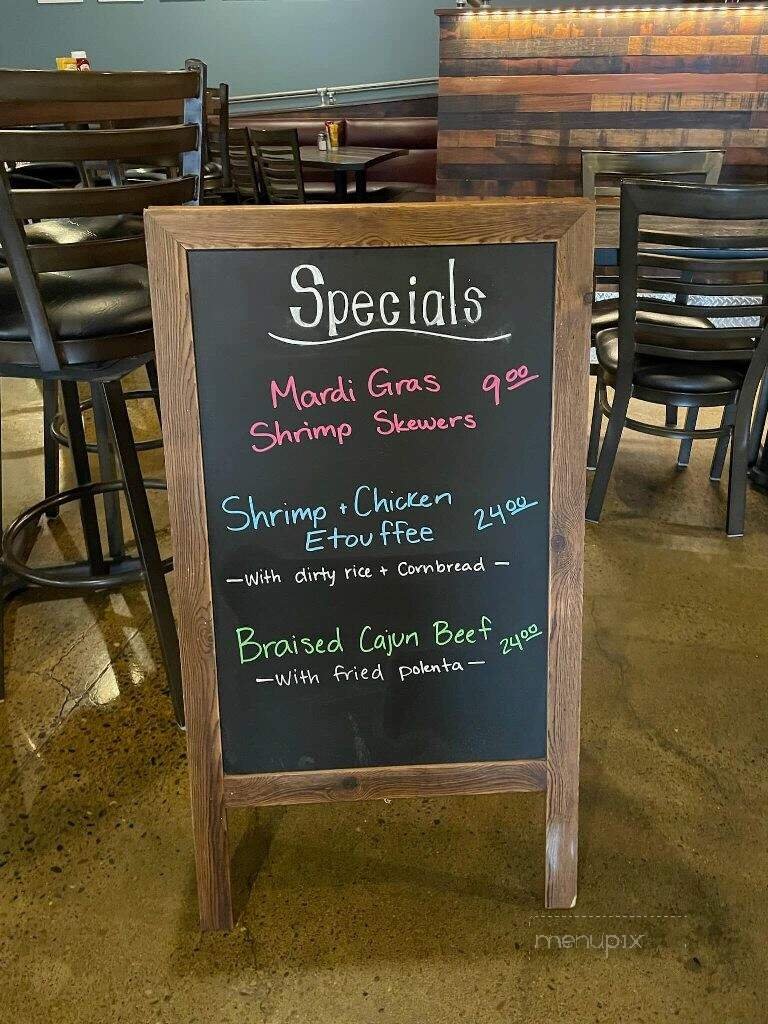 Specials
Mardi Gras 9.00
Shrimp Skewers
Shrimp + Chicken
Etouffee 24.00
-with dirty rice + Cornbread -
Braised Cajun Beef 24.00
-with fried polenta-
menupix